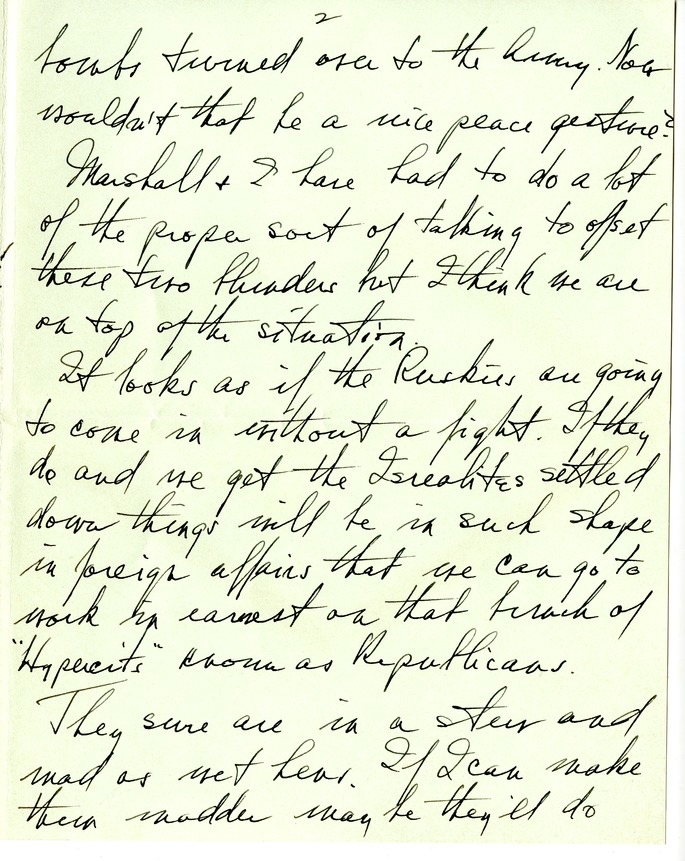 2
bombs turned over to the Army. Now
wouldn't that be a nice peace gesture?
Marshall & I have had to do a lot
of the proper sort of talking to offset
these two blunders but I think we are
on top of the situation.
It looks as if the Ruskies are going
to come in without a fight. If they
do and we get the Isrealites settled
down things will be in such shape
in foreign affairs that we can go to
work in earnest on that bunch of
"Hypercits" known as Republicans.
They sure are in a stew and
mad as wet hens. If I can make
them madder maybe they'll do